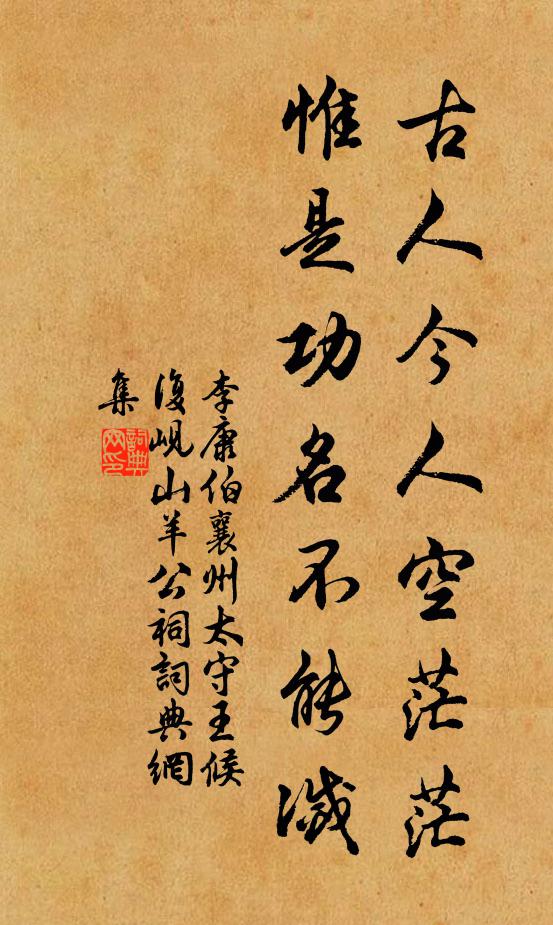 古人今人空茫茫
惟是功名不能滅
李康伯襄州太守王候
復峴山羊公祠詞典網
集
詞典
网印